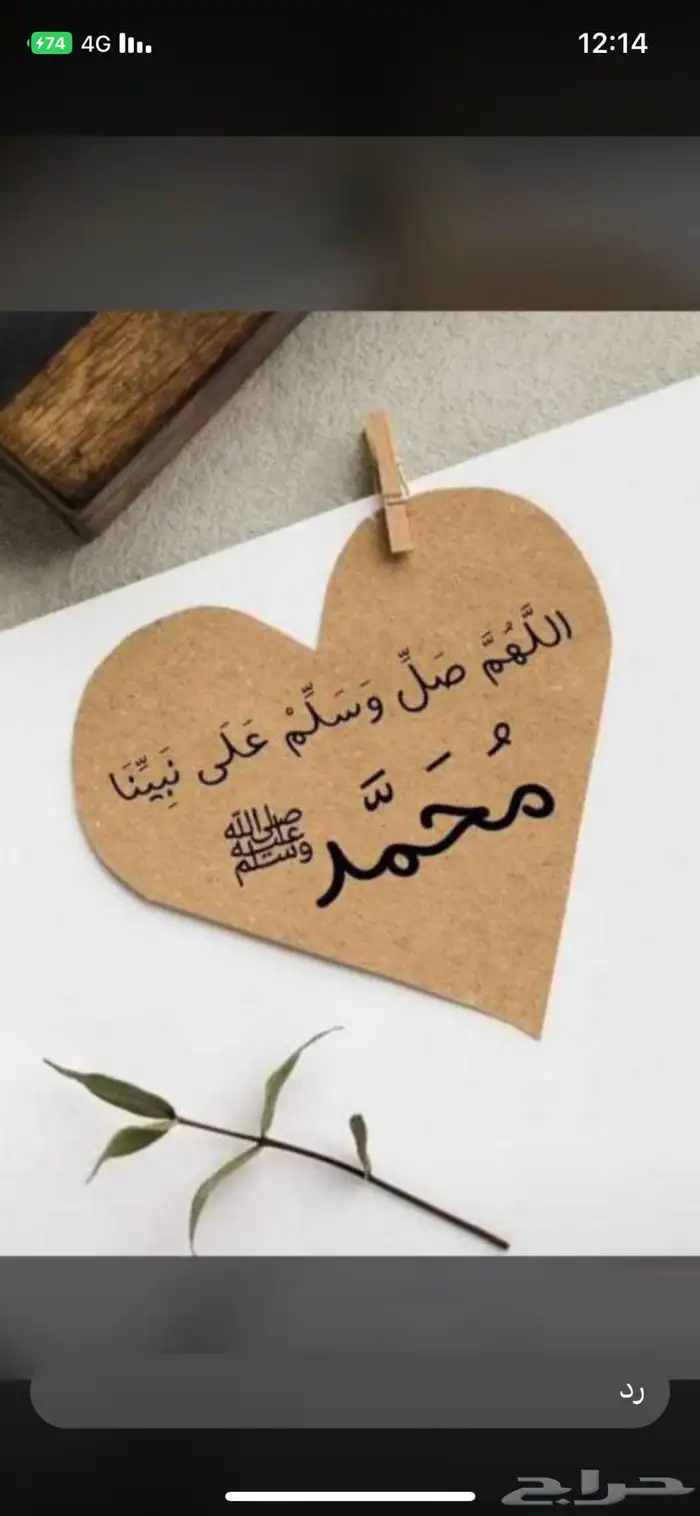 74 4G 12:14
اللَّهُمَّ صَلِّ وَسَلِّمْ عَلَى نَبِيِّنَا
مُحَمَّد ﷺ
رد
حراج